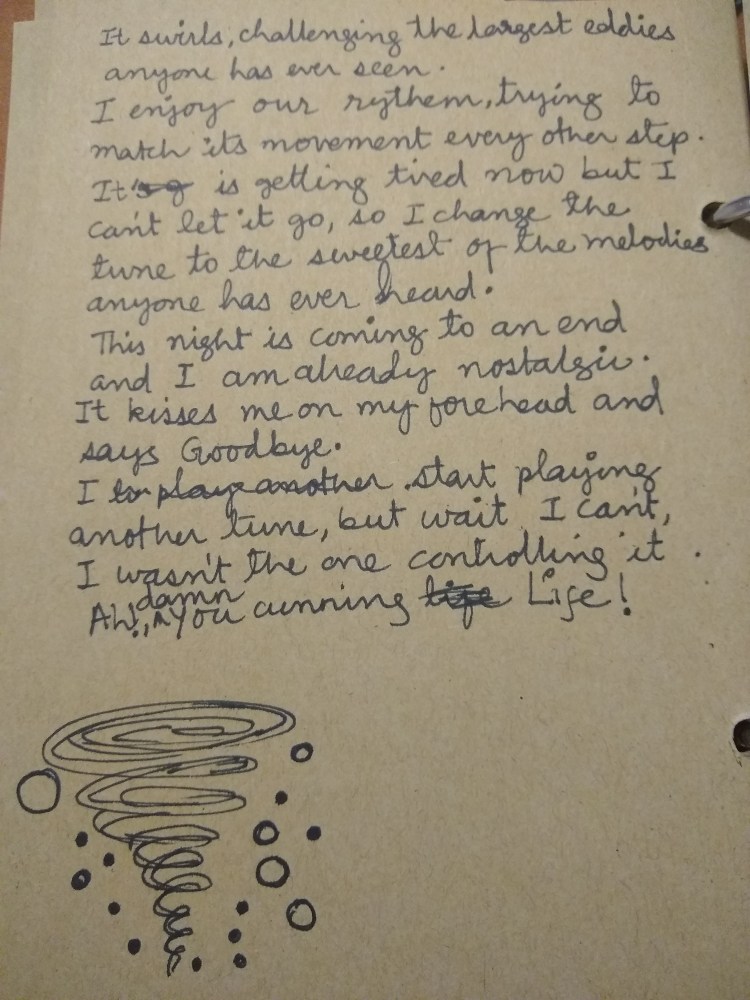 It swirls, challenging the largest eddies
anyone has ever seen.
I enjoy our rythem, trying to
match its movement every other step.
It's g is getting tired now but I
can't let it go, so I change the
tune to the sweetest of the melodies
anyone has ever heard.
This night is coming to an end
and I am already nostalgic.
It kisses me on my forehead and
says Goodbye.
I to play another start playing
another tune, but wait I can't,
I wasn't the one controlling it.
Ah!, damn you cunning life Life!